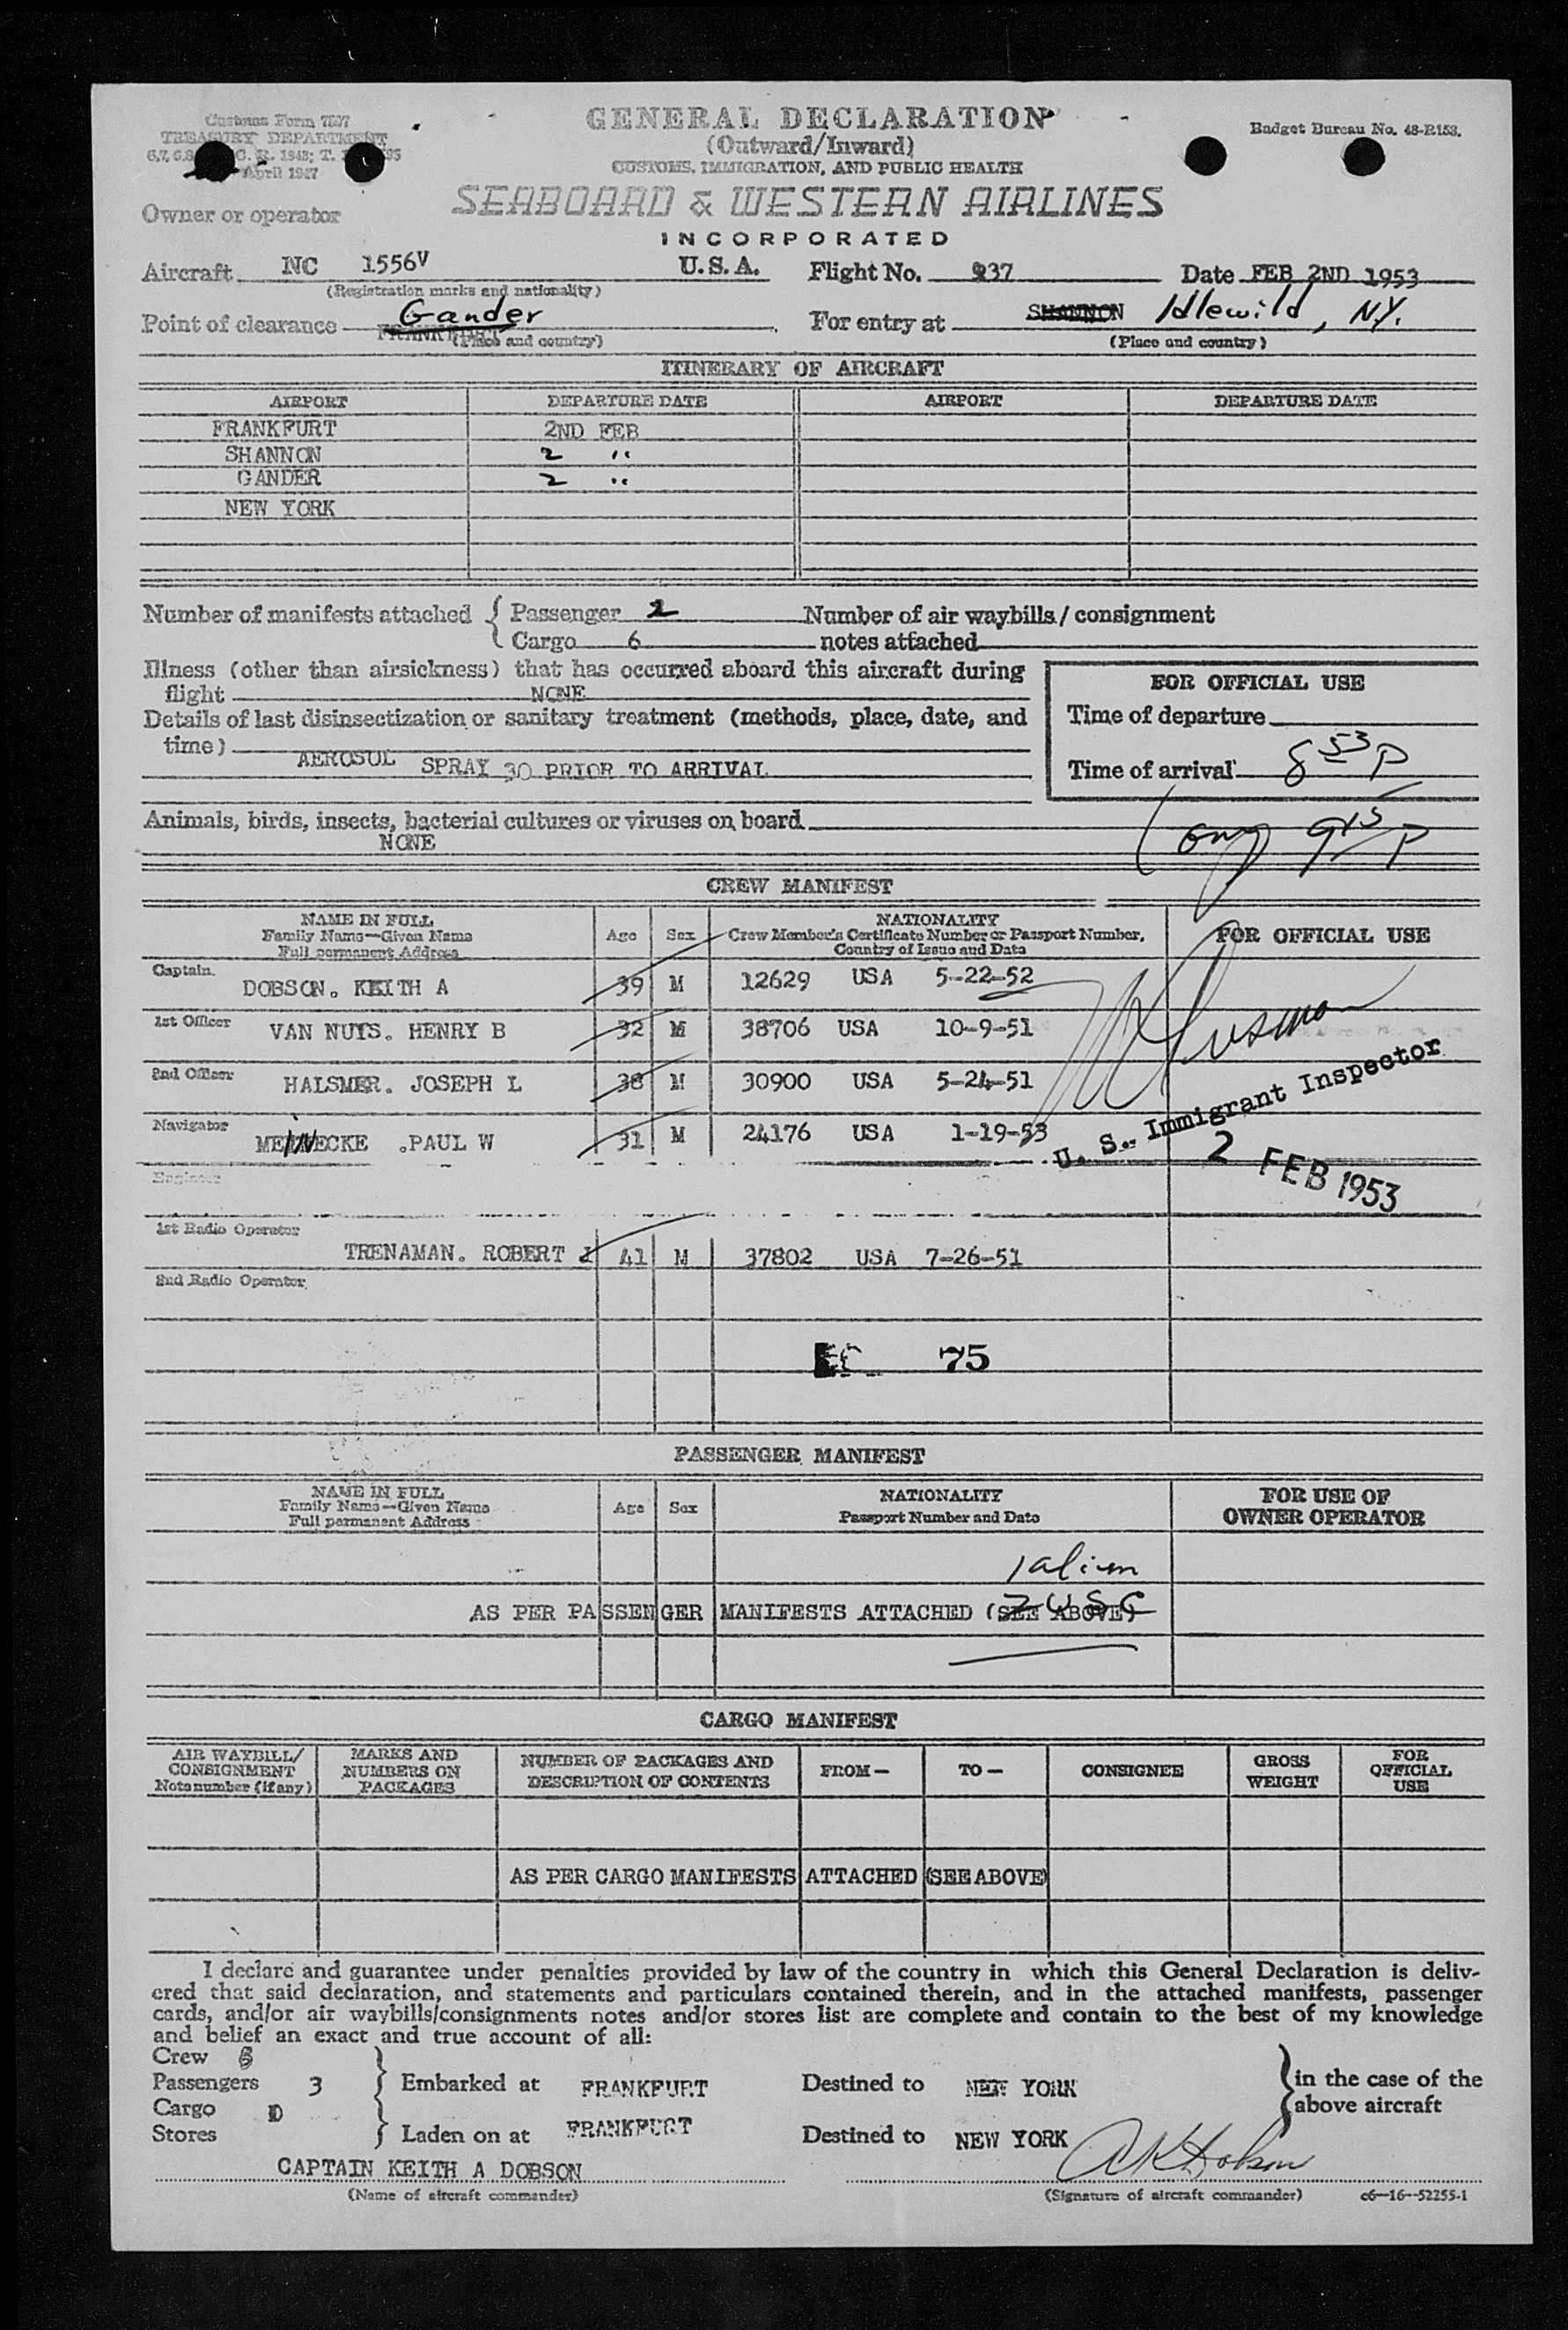 Customs Form 7507
TREASURY DEPARTMENT
April 1947
GENERAL DECLARATION
(Outward/Inward)
CUSTOMS, IMMIGRATION, AND PUBLIC HEALTH
Budget Bureau No. 48-R153.
SEABOARD & WESTERN AIRLINES
INCORPORATED
Owner or operator
Aircraft NC 1556V U.S.A. Flight No. 237 Date FEB 2ND 1953
(Registration marks and nationality)
Point of clearance Gander FRANKFURT For entry at SHANNON Idlewild, N.Y.
(Place and country) (Place and country)
ITINERARY OF AIRCRAFT
AIRPORT DEPARTURE DATE AIRPORT DEPARTURE DATE
FRANKFURT 2ND FEB
SHANNON 2 "
GANDER 2 "
NEW YORK
Number of manifests attached { Passenger 2 Number of air waybills/consignment
Cargo 6 notes attached
Illness (other than airsickness) that has occurred aboard this aircraft during
flight NONE
Details of last disinsectization or sanitary treatment (methods, place, date, and
time)
AEROSOL SPRAY 30 PRIOR TO ARRIVAL
FOR OFFICIAL USE
Time of departure
Time of arrival 8 53 P
Animals, birds, insects, bacterial cultures or viruses on board
NONE
9 15 P
CREW MANIFEST
NAME IN FULL
Family Name—Given Name
Full permanent Address
Age
Sex
NATIONALITY
Crew Member's Certificate Number or Passport Number,
Country of Issue and Date
FOR OFFICIAL USE
Captain
DOBSON. KEITH A 39 M 12629 USA 5-22-52
1st Officer
VAN NUYS. HENRY B 32 M 38706 USA 10-9-51
2nd Officer
HALSMER. JOSEPH L 38 M 30900 USA 5-24-51
Navigator
MEINECKE .PAUL W 31 M 24176 USA 1-19-53
U. S. Immigrant Inspector
2 FEB 1953
Engineer
1st Radio Operator
TRENAMAN. ROBERT J 41 M 37802 USA 7-26-51
2nd Radio Operator
75
PASSENGER MANIFEST
NAME IN FULL
Family Name—Given Name
Full permanent Address
Age
Sex
NATIONALITY
Passport Number and Date
FOR USE OF
OWNER OPERATOR
1 alien
2 USC
AS PER PASSENGER MANIFESTS ATTACHED (SEE ABOVE)
CARGO MANIFEST
AIR WAYBILL/
CONSIGNMENT
Note number (if any)
MARKS AND
NUMBERS ON
PACKAGES
NUMBER OF PACKAGES AND
DESCRIPTION OF CONTENTS
FROM—
TO—
CONSIGNEE
GROSS
WEIGHT
FOR
OFFICIAL
USE
AS PER CARGO MANIFESTS ATTACHED (SEE ABOVE)
I declare and guarantee under penalties provided by law of the country in which this General Declaration is deliv-
ered that said declaration, and statements and particulars contained therein, and in the attached manifests, passenger
cards, and/or air waybills/consignments notes and/or stores list are complete and contain to the best of my knowledge
and belief an exact and true account of all:
Crew
Passengers 3 } Embarked at FRANKFURT Destined to NEW YORK } in the case of the
Cargo above aircraft
Stores } Laden on at FRANKFURT Destined to NEW YORK
CAPTAIN KEITH A DOBSON
(Name of aircraft commander) (Signature of aircraft commander) c6—16—52255-1